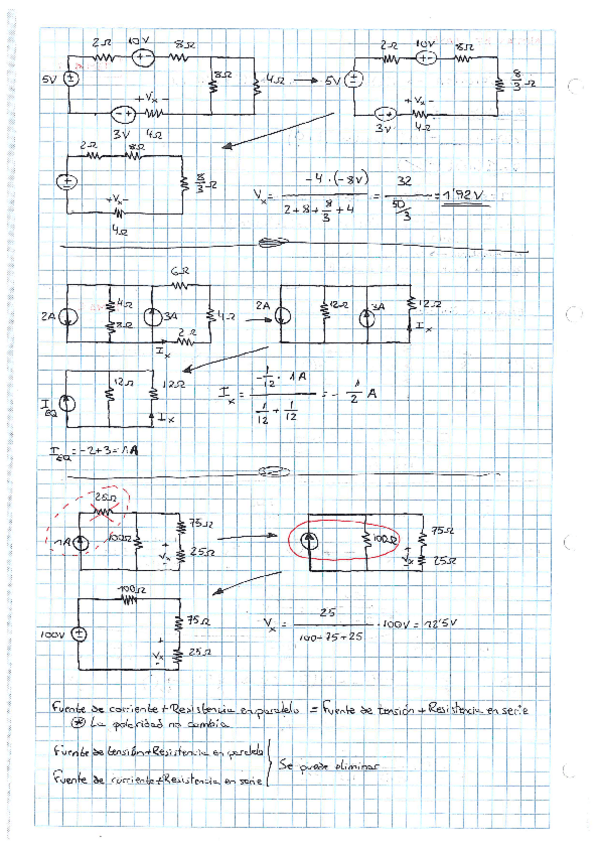 2Ω 10V 8Ω
5V 8Ω 4Ω
+ Vx -
3V 4Ω
2Ω 10V 8Ω
5V 8/3 Ω
+ Vx -
3V 4Ω
2Ω 8Ω
8/3 Ω
+ Vx -
4Ω
Vx = -4 · (-8V) / (2+8+8/3+4) = 32 / (50/3) = 1'92V
6Ω
2A 4Ω 8Ω 3A 4Ω
2Ω
Ix
2A 12Ω 3A 12Ω
Ix
IEQ 12Ω 12Ω
Ix
Ix = -1/12 · 1A / (1/12 + 1/12) = -1/2 A
IEQ = -2+3 = 1A
25Ω
1A 100Ω 75Ω
+ Vx - 25Ω
100Ω 75Ω
+ Vx - 25Ω
100Ω
100V 75Ω
+ Vx - 25Ω
Vx = 25 / (100+75+25) · 100V = 12'5V
Fuente de corriente + Resistencia en paralelo = Fuente de tensión + Resistencia en serie
* La polaridad no cambia
Fuente de tensión + Resistencia en paralelo
Fuente de corriente + Resistencia en serie
Se puede eliminar